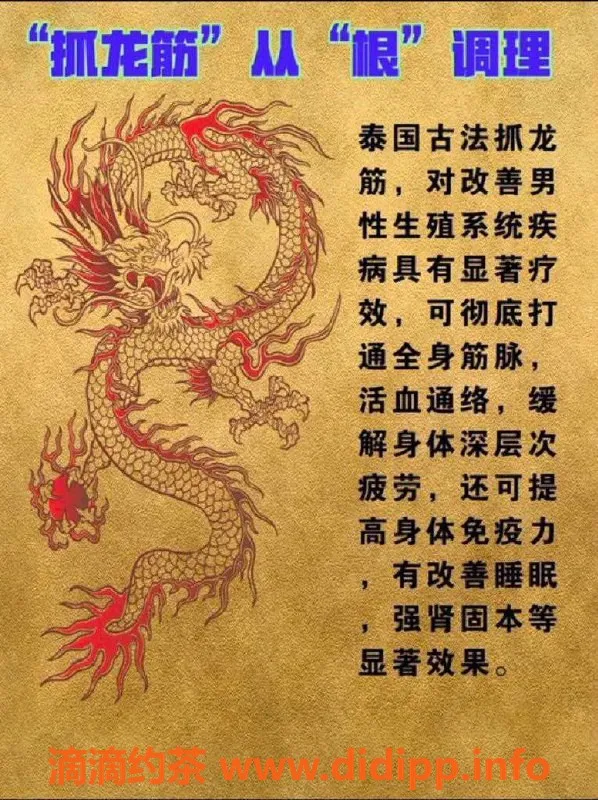 “抓龙筋”从“根”调理
泰国古法抓龙
筋，对改善男
性生殖系统疾
病具有显著疗
效，可彻底打
通全身筋脉，
活血通络，缓
解身体深层次
疲劳，还可提
高身体免疫力
，有改善睡眠
，强肾固本等
显著效果。
滴滴约茶 www.didipp.info